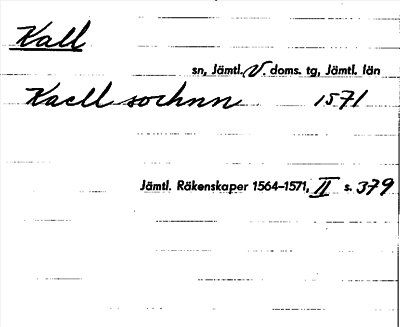 Kall
sn, Jämtl. V. doms. tg, Jämtl. län
Kaell sochnn 1571
Jämtl. Räkenskaper 1564–1571, II s. 379